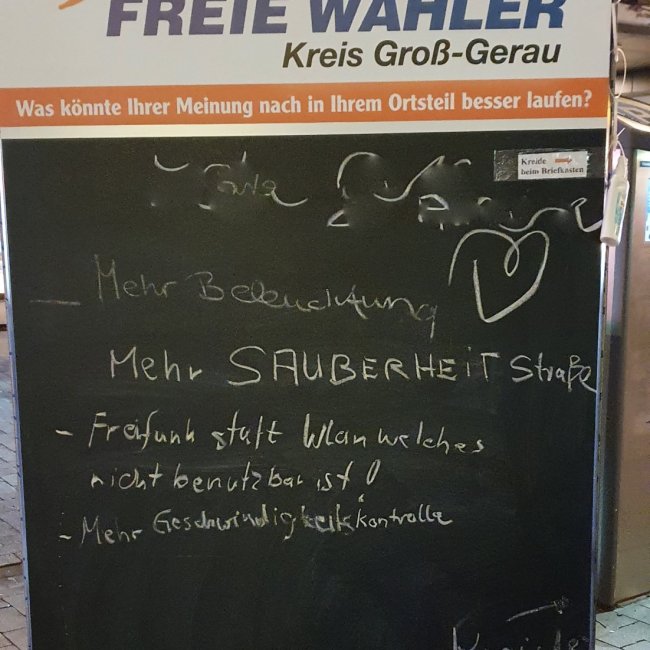 FREIE WÄHLER
Kreis Groß-Gerau
Was könnte Ihrer Meinung nach in Ihrem Ortsteil besser laufen?
Kreide
beim Briefkasten
Mehr Beleuchtung
Mehr SAUBERHEIT Straße
- Freifunk statt Wlan welches
nicht benutzbar ist!
- Mehr Geschwindigkeitskontrolle